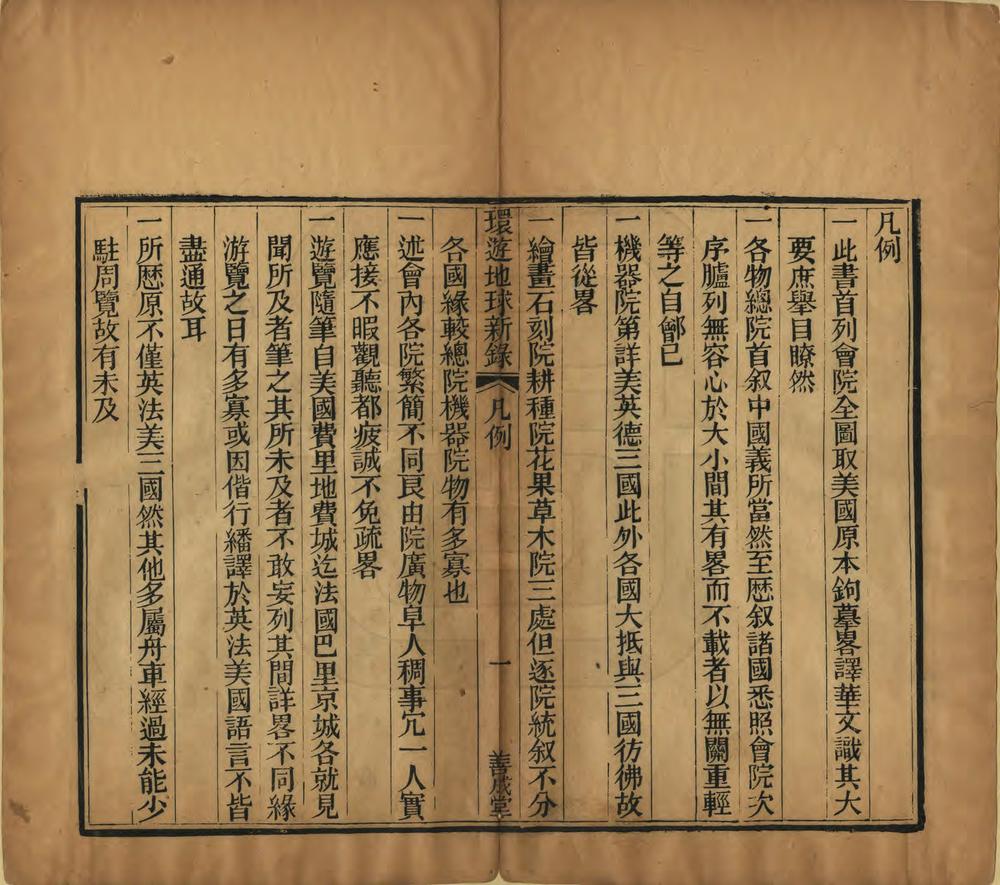 凡例
一此書首列會院全圖取美國原本鉤摹畧譯華文識其大
要庶舉目瞭然
一各物總院首叙中國義所當然至歷叙諸國悉照會院次
序臚列無容心於大小間其有畧而不載者以無關重輕
等之自鄶已
一機器院第詳美英德三國此外各國大抵與三國彷彿故
皆從畧
一繪畫石刻院耕種院花果草木院三處但逐院統叙不分
環遊地球新錄 凡例 一 善成堂
各國緣較總院機器院物有多寡也
一述會內各院繁簡不同良由院廣物阜人稠事冗一人實
應接不暇觀聽都疲誠不免疏畧
一遊覽隨筆自美國費里地費城迄法國巴里京城各就見
聞所及者筆之其所未及者不敢妄列其間詳畧不同緣
游覽之日有多寡或因偕行繙譯於英法美國語言不皆
盡通故耳
一所歷原不僅英法美三國然其他多屬舟車經過未能少
駐周覽故有未及